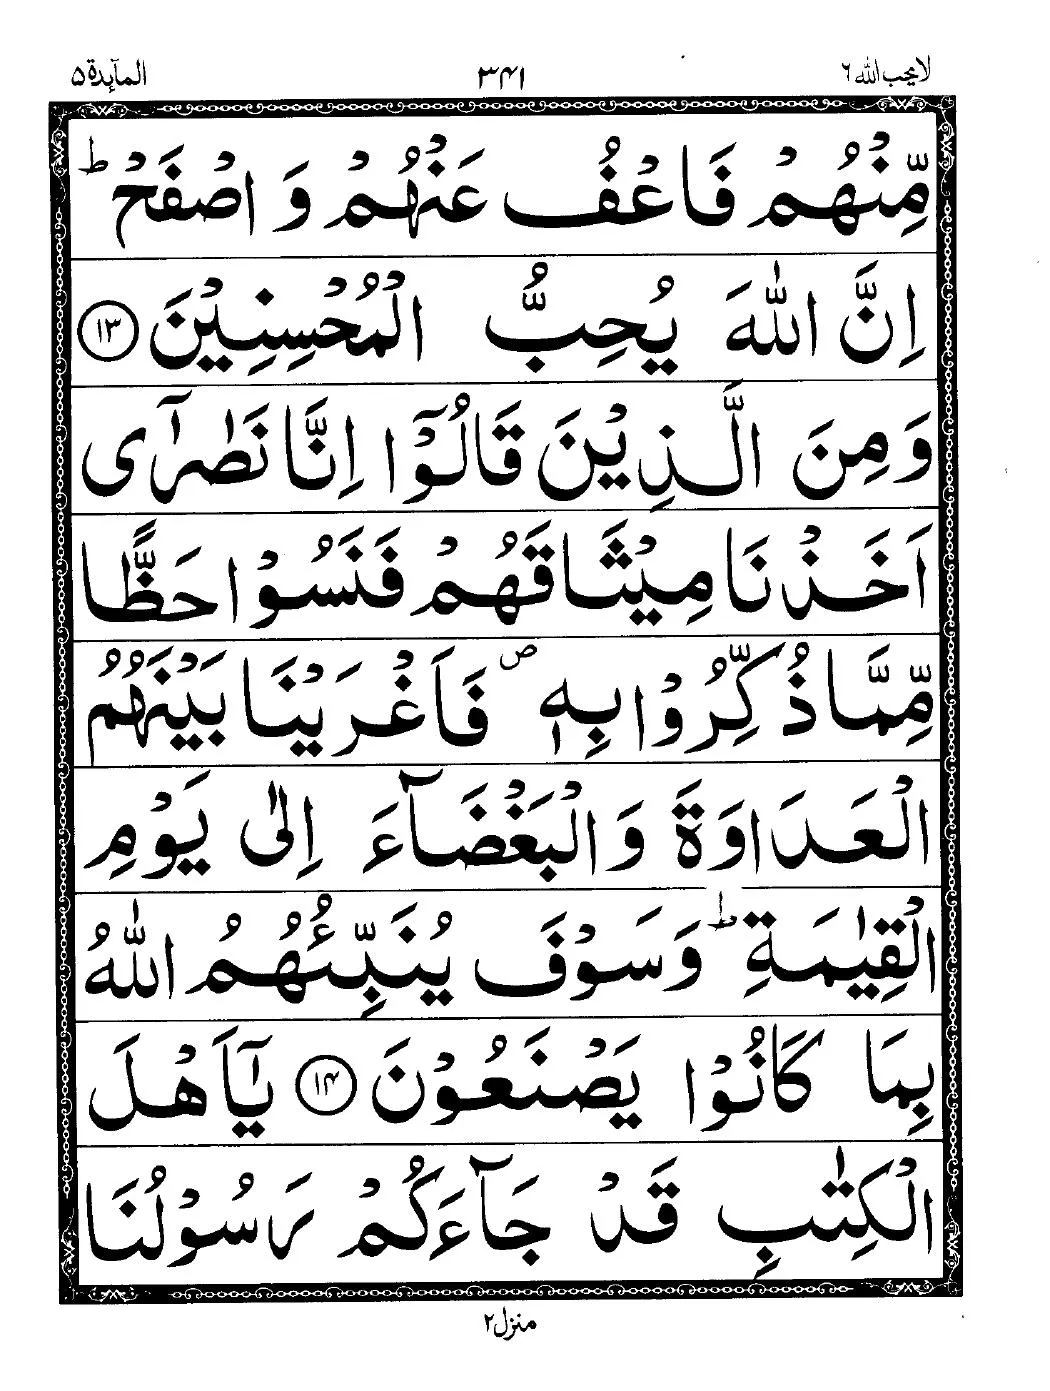 لا یحب اللہ ۶ ۳۴۱ المآئدة ۵
مِّنْهُمْ فَاعْفُ عَنْهُمْ وَ اصْفَحْ ؕ
اِنَّ اللّٰهَ يُحِبُّ الْمُحْسِنِيْنَ ۱۳
وَ مِنَ الَّذِيْنَ قَالُوْۤا اِنَّا نَصٰرٰۤى
اَخَذْنَا مِيْثَاقَهُمْ فَنَسُوْا حَظًّا
مِّمَّا ذُكِّرُوْا بِهٖ ۪ فَاَغْرَيْنَا بَيْنَهُمُ
الْعَدَاوَةَ وَ الْبَغْضَآءَ اِلٰى يَوْمِ
الْقِيٰمَةِ ؕ وَ سَوْفَ يُنَبِّئُهُمُ اللّٰهُ
بِمَا كَانُوْا يَصْنَعُوْنَ ۱۴ يٰۤاَهْلَ
الْكِتٰبِ قَدْ جَآءَكُمْ رَسُوْلُنَا
منزل ۲